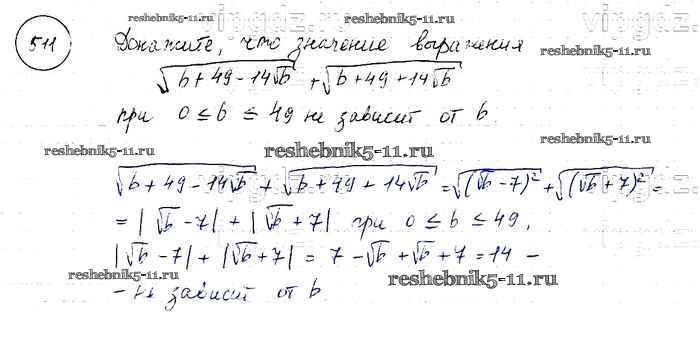 reshebnik5-11.ru
511 Докажите, что значение выражения
√(b+49-14√b) + √(b+49+14√b)
при 0 ≤ b ≤ 49 не зависит от b.
reshebnik5-11.ru
reshebnik5-11.ru
reshebnik5-11.ru
√(b+49-14√b) + √(b+49+14√b) = √((√b-7)²) + √((√b+7)²) =
= |√b-7| + |√b+7| при 0 ≤ b ≤ 49,
|√b-7| + |√b+7| = 7-√b+√b+7 = 14 -
reshebnik5-11.ru
reshebnik5-11.ru
- не зависит от b.